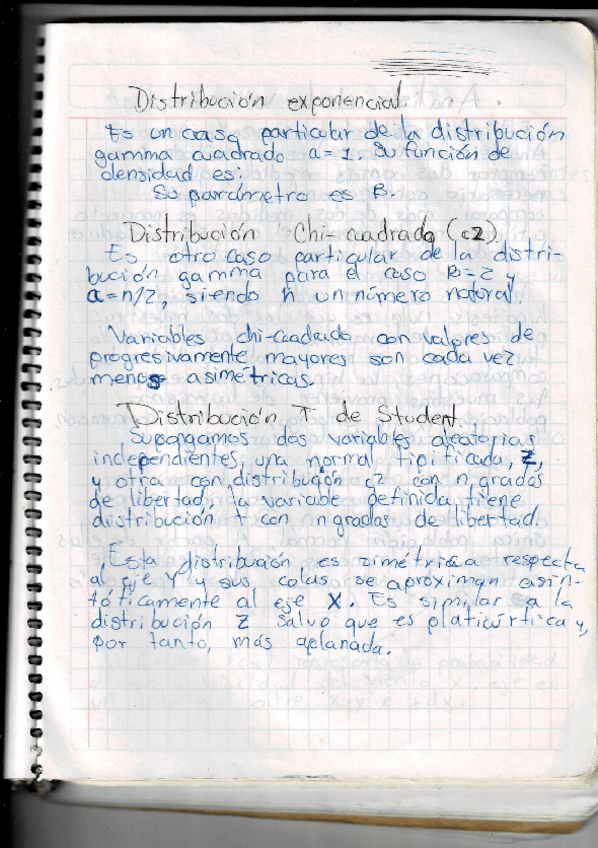 Distribución exponencial
Es un caso particular de la distribución
gamma cuadrado a=1. Su función de
densidad es:
Su parámetro es B.
Distribución Chi-cuadrado (c2).
Es otro caso particular de la distri-
bución gamma para el caso B=2 y
a=n/2, siendo n un número natural.
Variables chi-cuadrado con valores de
progresivamente mayores son cada vez
menos asimétricas.
Distribución T de Student.
Supongamos dos variables aleatorias
independientes, una normal tipificada, Z,
y otra con distribución c2 con n grados
de libertad, la variable definida tiene
distribución t con n grados de libertad.
Esta distribución es simétrica respecto
al eje Y y sus colas se aproximan asin-
tóticamente al eje X. Es similar a la
distribución Z salvo que es platicúrtica y,
por tanto, más aplanada.